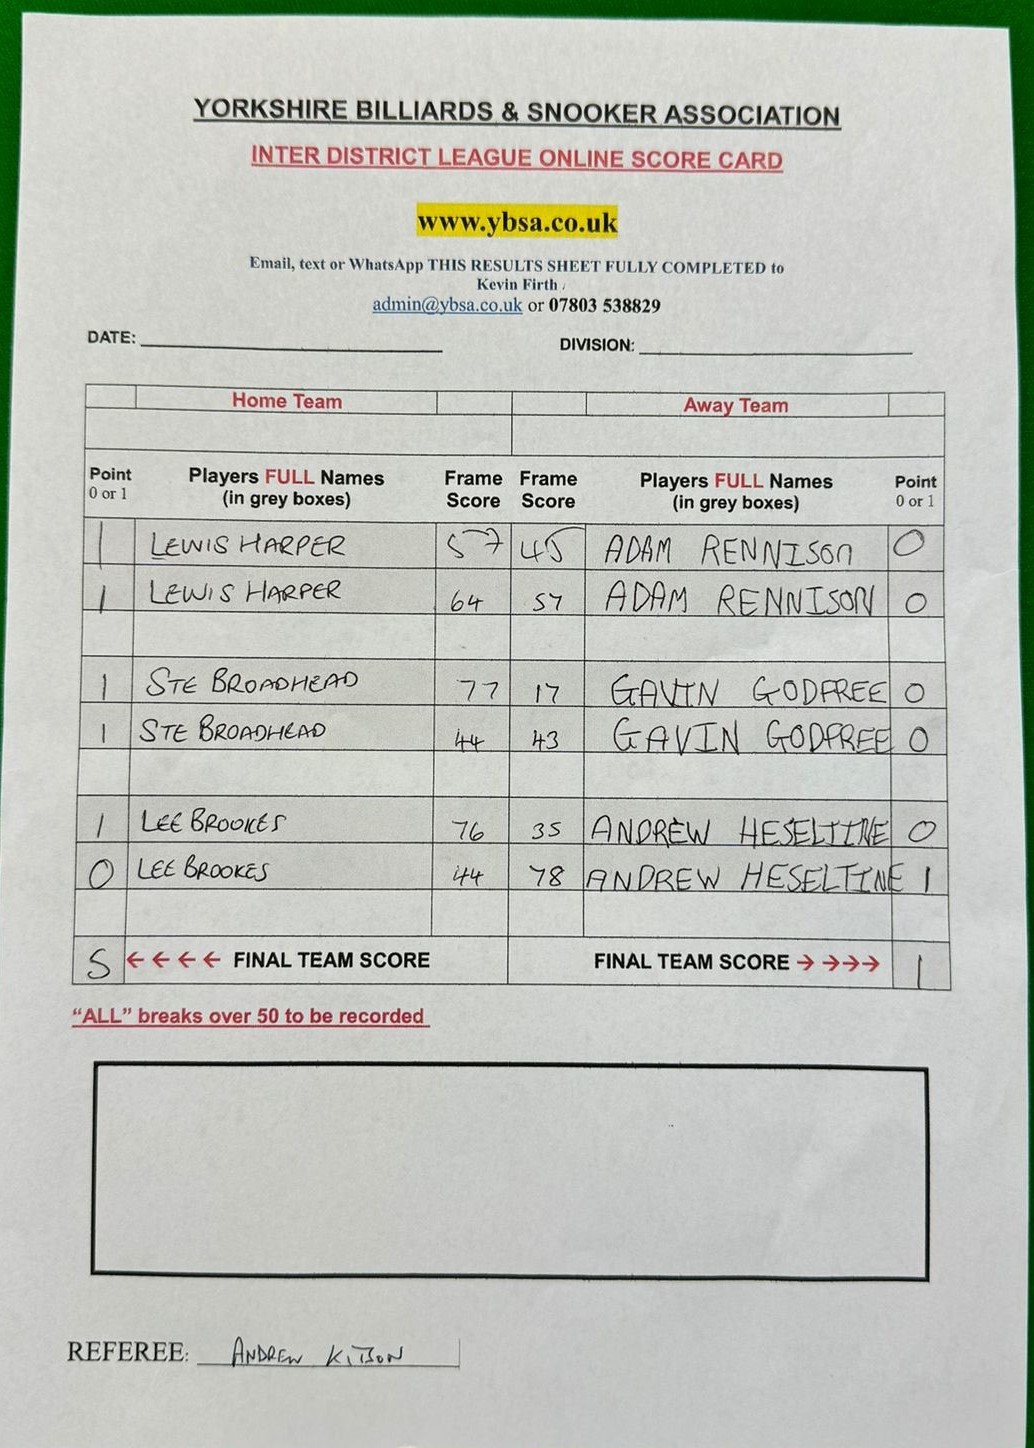 YORKSHIRE BILLIARDS & SNOOKER ASSOCIATION
INTER DISTRICT LEAGUE ONLINE SCORE CARD
www.ybsa.co.uk
Email, text or WhatsApp THIS RESULTS SHEET FULLY COMPLETED to
Kevin Firth
admin@ybsa.co.uk or 07803 538829
DATE: DIVISION:
Home Team Away Team
Point 0 or 1 Players FULL Names (in grey boxes) Frame Score Frame Score Players FULL Names (in grey boxes) Point 0 or 1
1 LEWIS HARPER 57 45 ADAM RENNISON 0
1 LEWIS HARPER 64 57 ADAM RENNISON 0
1 STE BROADHEAD 77 17 GAVIN GODFREE 0
1 STE BROADHEAD 44 43 GAVIN GODFREE 0
1 LEE BROOKES 76 35 ANDREW HESELTINE 0
0 LEE BROOKES 44 78 ANDREW HESELTINE 1
5 ←←←← FINAL TEAM SCORE FINAL TEAM SCORE →→→→ 1
“ALL” breaks over 50 to be recorded
REFEREE: ANDREW KITSON